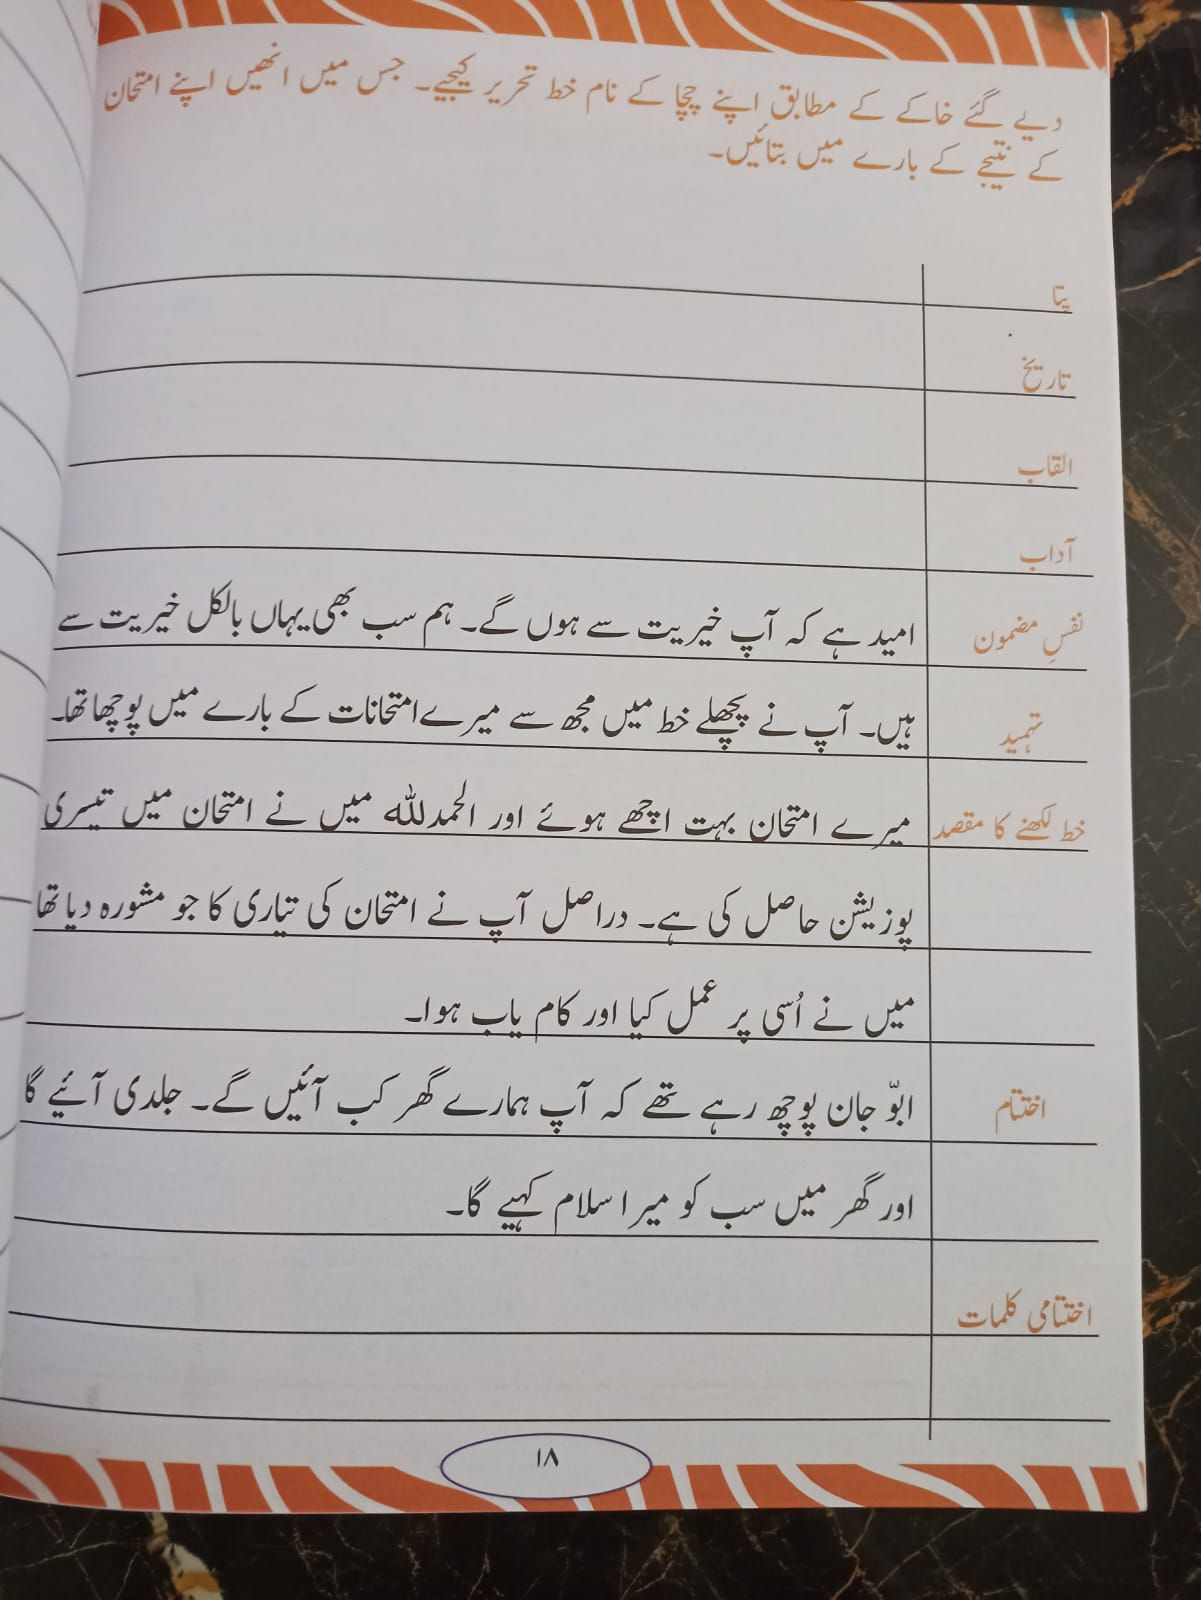 دیے گئے خاکے کے مطابق اپنے چچا کے نام خط تحریر کیجیے۔ جس میں انھیں اپنے امتحان
کے نتیجے کے بارے میں بتائیں۔
پتا
تاریخ
القاب
آداب
نفسِ مضمون امید ہے کہ آپ خیریت سے ہوں گے۔ ہم سب بھی یہاں بالکل خیریت سے
تمہید ہیں۔ آپ نے پچھلے خط میں مجھ سے میرے امتحانات کے بارے میں پوچھا تھا۔
خط لکھنے کا مقصد میرے امتحان بہت اچھے ہوئے اور الحمدللہ میں نے امتحان میں تیسری
پوزیشن حاصل کی ہے۔ دراصل آپ نے امتحان کی تیاری کا جو مشورہ دیا تھا
میں نے اُسی پر عمل کیا اور کام یاب ہوا۔
اختتام ابوّ جان پوچھ رہے تھے کہ آپ ہمارے گھر کب آئیں گے۔ جلدی آئیے گا
اور گھر میں سب کو میرا سلام کہیے گا۔
اختتامی کلمات
۱۸